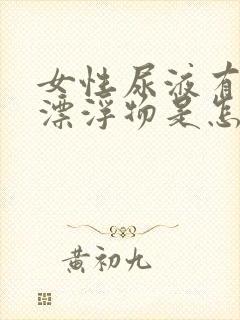 女性尿液有
漂浮物是怎
黄初九